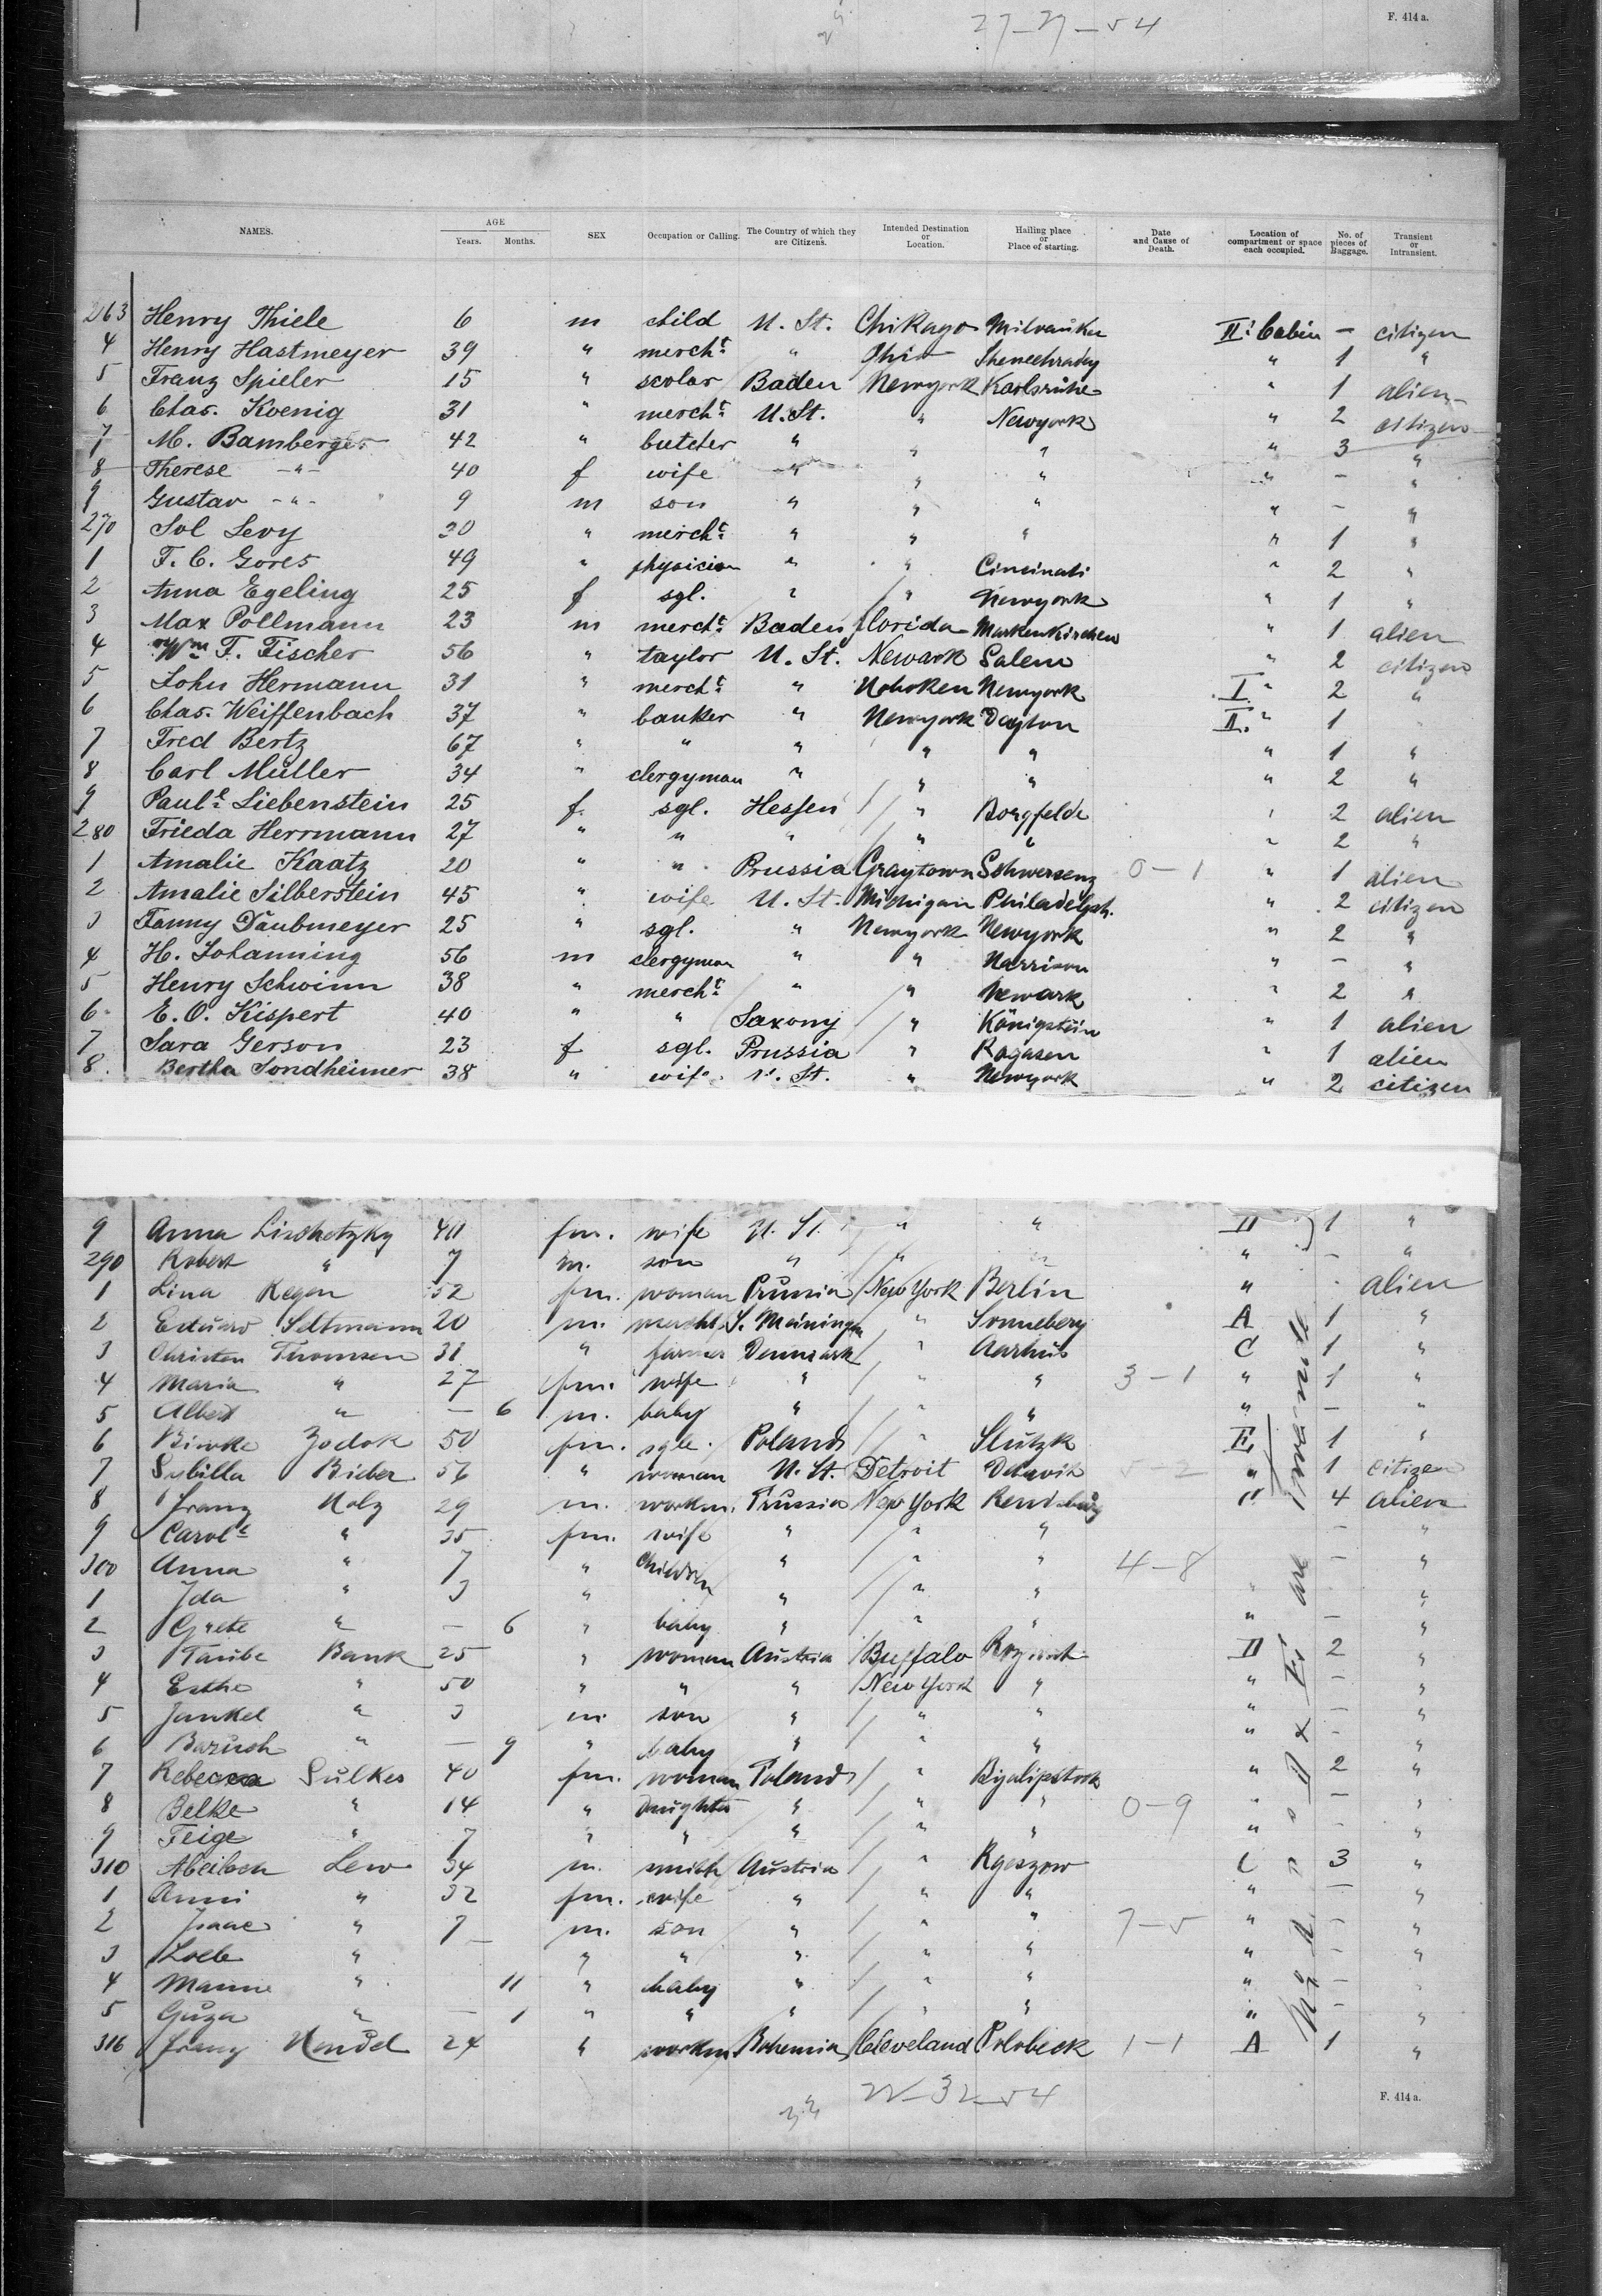 27-27-54
F. 414 a.
NAMES. AGE Years. Months. SEX Occupation or Calling. The Country of which they are Citizens. Intended Destination or Location. Hailing place or Place of starting. Date and Cause of Death. Location of compartment or space each occupied. No. of pieces of Baggage. Transient or Intransient.
263 Henry Thiele 6 m child U. St. Chikago Milvauken II. Cabin - citizen
4 Henry Hastmeyer 39 " mercht " Ohio Shenechraday " 1 "
5 Franz Spieler 15 " scolar Baden Newyork Karlsruhe " 1 alien
6 Chas. Koenig 31 " mercht U. St. " Newyork " 2 citizen
7 M. Bamberger 42 " butcher " " " " 3 "
8 Therese -"- 40 f wife " " " " - "
9 Gustav -"- 9 m son " " " " - "
270 Sol Levy 30 " mercht " " " " 1 "
1 F. C. Gores 49 " physician " " Cincinati " 2 "
2 Anna Egeling 25 f sgl. " " Newyork " 1 "
3 Max Pollmann 23 m mercht Baden florida Markenkirchen " 1 alien
4 Wm F. Fischer 56 " taylor U. St. Newark Salem " 2 citizen
5 John Hermann 31 " mercht " Hoboken Newyork I " 2 "
6 Chas. Weiffenbach 37 " banker " Newyork Dayton II. " 1
7 Fred Bertz 67 " " " " " " 1 "
8 Carl Müller 34 " clergyman " " " " 2 "
9 Paule Liebenstein 25 f. sgl. Hessen " Borgfelde " 2 alien
280 Frieda Herrmann 27 " " " " " " 2 "
1 Amalie Kaatz 20 " " Prussia Graytown Schwersenz 0-1 " 1 alien
2 Amalie Silberstein 45 " wife U. St. Michigan Philadelph. " 2 citizen
3 Fanny Daubmeyer 25 " sgl. " Newyork Newyork " 2 "
4 H. Johanning 56 m clergyman " " Harrison " - "
5 Henry Schwinn 38 " mercht " " Newark " 2 "
6 E. O. Kispert 40 " " Saxony " Königstein " 1 alien
7 Sara Gerson 23 f sgl. Prussia " Rogasen " 1 alien
8 Bertha Sondheimer 38 " wife U. St. " Newyork " 2 citizen
9 Anna Lischetzky 40 fm. wife U. St. " " II 1 "
290 Robert " 7 m. son " " " " - "
1 Lina 52 fm. woman Prussia New York Berlin " - alien
2 Eduard Seltmann 20 m. mercht S. Meiningen " Sonneberg A 1 "
3 Christen Thomsen 31 " farmer Denmark " Aarhus C 1 "
4 Maria " 27 fm. wife " " " 3-1 " 1 "
5 Albert " - 6 m. baby " " " " - "
6 Zodok 50 fm. sgle. Poland " Slutzk E 1 "
7 Sybilla Bieber 56 " woman U. St. Detroit 5-2 " 1 citizen
8 Franz Holz 29 m. workm. Prussia New York Rendsburg C 4 alien
9 Carole " 35 fm. wife " " " - "
300 Anna " 7 " children " " " 4-8 - "
1 Ida " 3 " " " " " "
2 Grete " - 6 " baby " " " " - "
3 Taube Bank 25 " woman Austria Buffalo II 2 "
4 Esthe " 50 " " " New York " " - "
5 Jankel " 3 m son " " " " - "
6 Baruch " - 9 " baby " " " " - "
7 Rebecca Sulkes 40 fm. woman Poland " Byalipstock " 2 "
8 Belke " 14 " daughter " " " 0-9 " - "
9 Feige " 7 " " " " " " - "
310 Lew 34 m. smith Austria " Rgeszow C 3 "
1 Anni " 32 fm. wife " " " " - "
2 Isaac " 7 m. son " " " 7-5 " - "
3 Loeb " - " " " " " " - "
4 Manne " 11 " baby " " " " - "
5 Guza " - 1 " " " " " " - "
316 Franz Hendel 24 " workm Bohemia Cleveland Polobeck 1-1 A 1 "
F. 414 a.